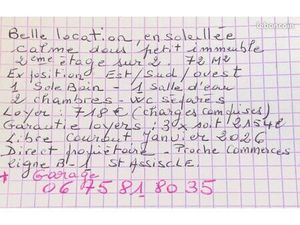 leboncoin
Belle location, ensoleillée
calme dans petit immeuble
2ème étage sur 2. 72 M2
Exposition Est/Sud/ouest
1 Salle Bain - 1 Salle d'eau
2 chambres - WC séparés
Loyer : 718€ (charges comprises)
Garantie loyers : 3 x soit : 2154€
Libre courant janvier 2026
Direct propriétaire - Proche commerces
ligne B-1 St ASSISCLE.
+ Garage
06 75 81 80 35